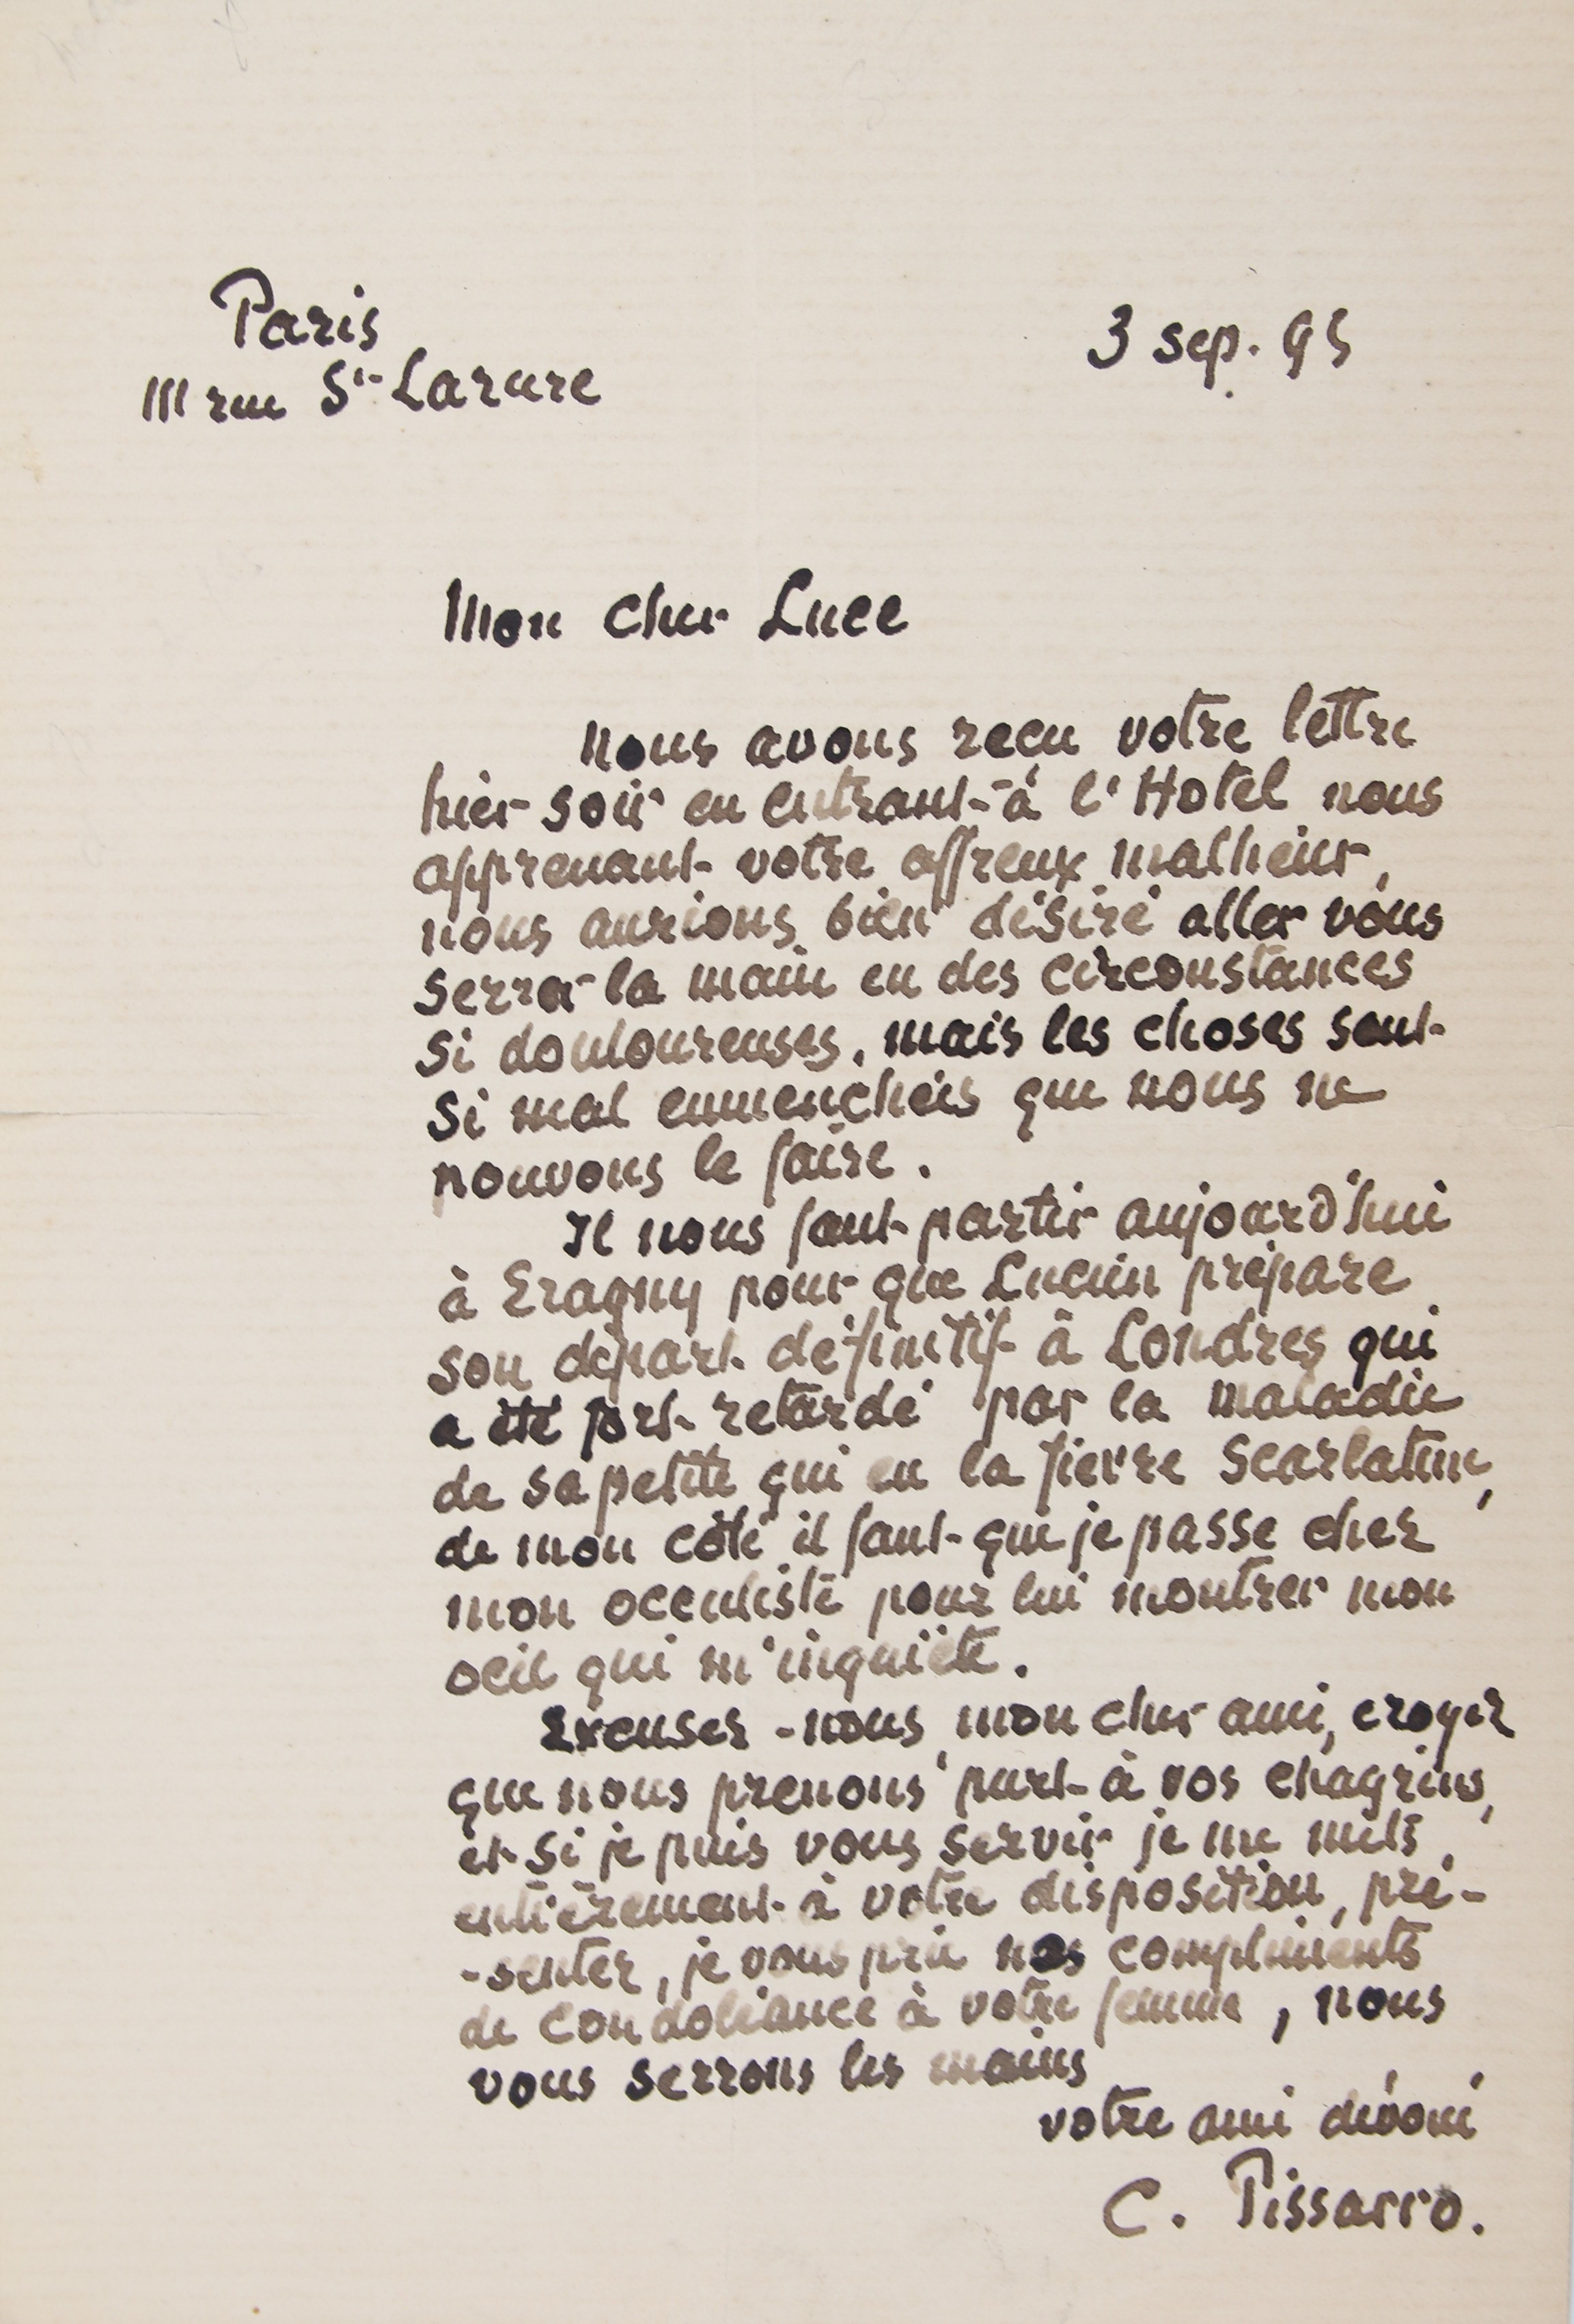 Paris
3 sep. 95
111 rue St-Lazare
Mon cher Luce
Nous avons reçu votre lettre
hier soir en entrant à l'Hotel nous
apprenant votre affreux malheur,
nous aurions bien désiré aller vous
serrer la main en des circonstances
si douloureuses, mais les choses sont
si mal emmenchées que nous ne
pouvons le faire.
Il nous faut partir aujourd'hui
à Eragny pour que Lucien prépare
son départ définitif à Londres qui
a été fort retardé par la maladie
de sa petite qui eu la fievre scarlatine,
de mon côté il faut que je passe chez
mon occuliste pour lui montrer mon
oeil qui m'inquiète.
Excusez-nous, mon cher ami, croyez
que nous prenons part à vos chagrins,
et si je puis vous servir je me mets
entièrement à votre disposition, pré-
-senter, je vous prie nos compliments
de condoléance à votre femme, nous
vous serrons les mains
votre ami dévoué
C. Pissarro.